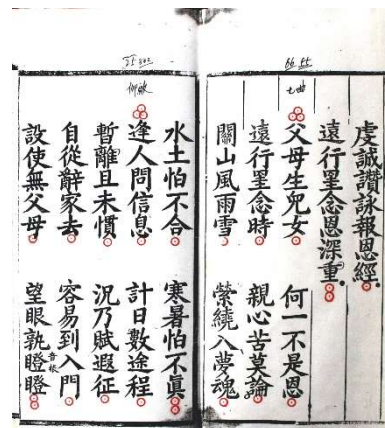 虔誠讚詠報恩經
遠行星念恩深重
父母生兒女 何一不是恩
遠行星念時 親心苦莫論
關山風雨雪 縈繞入夢魂
水土怕不合 寒暑怕不眞
逢人問信息 計日數途程
暫離且未慣 況乃賦遐征
自從辭家去 容易到入門
設使無父母 望眼孰瞪瞪
音根
七曲